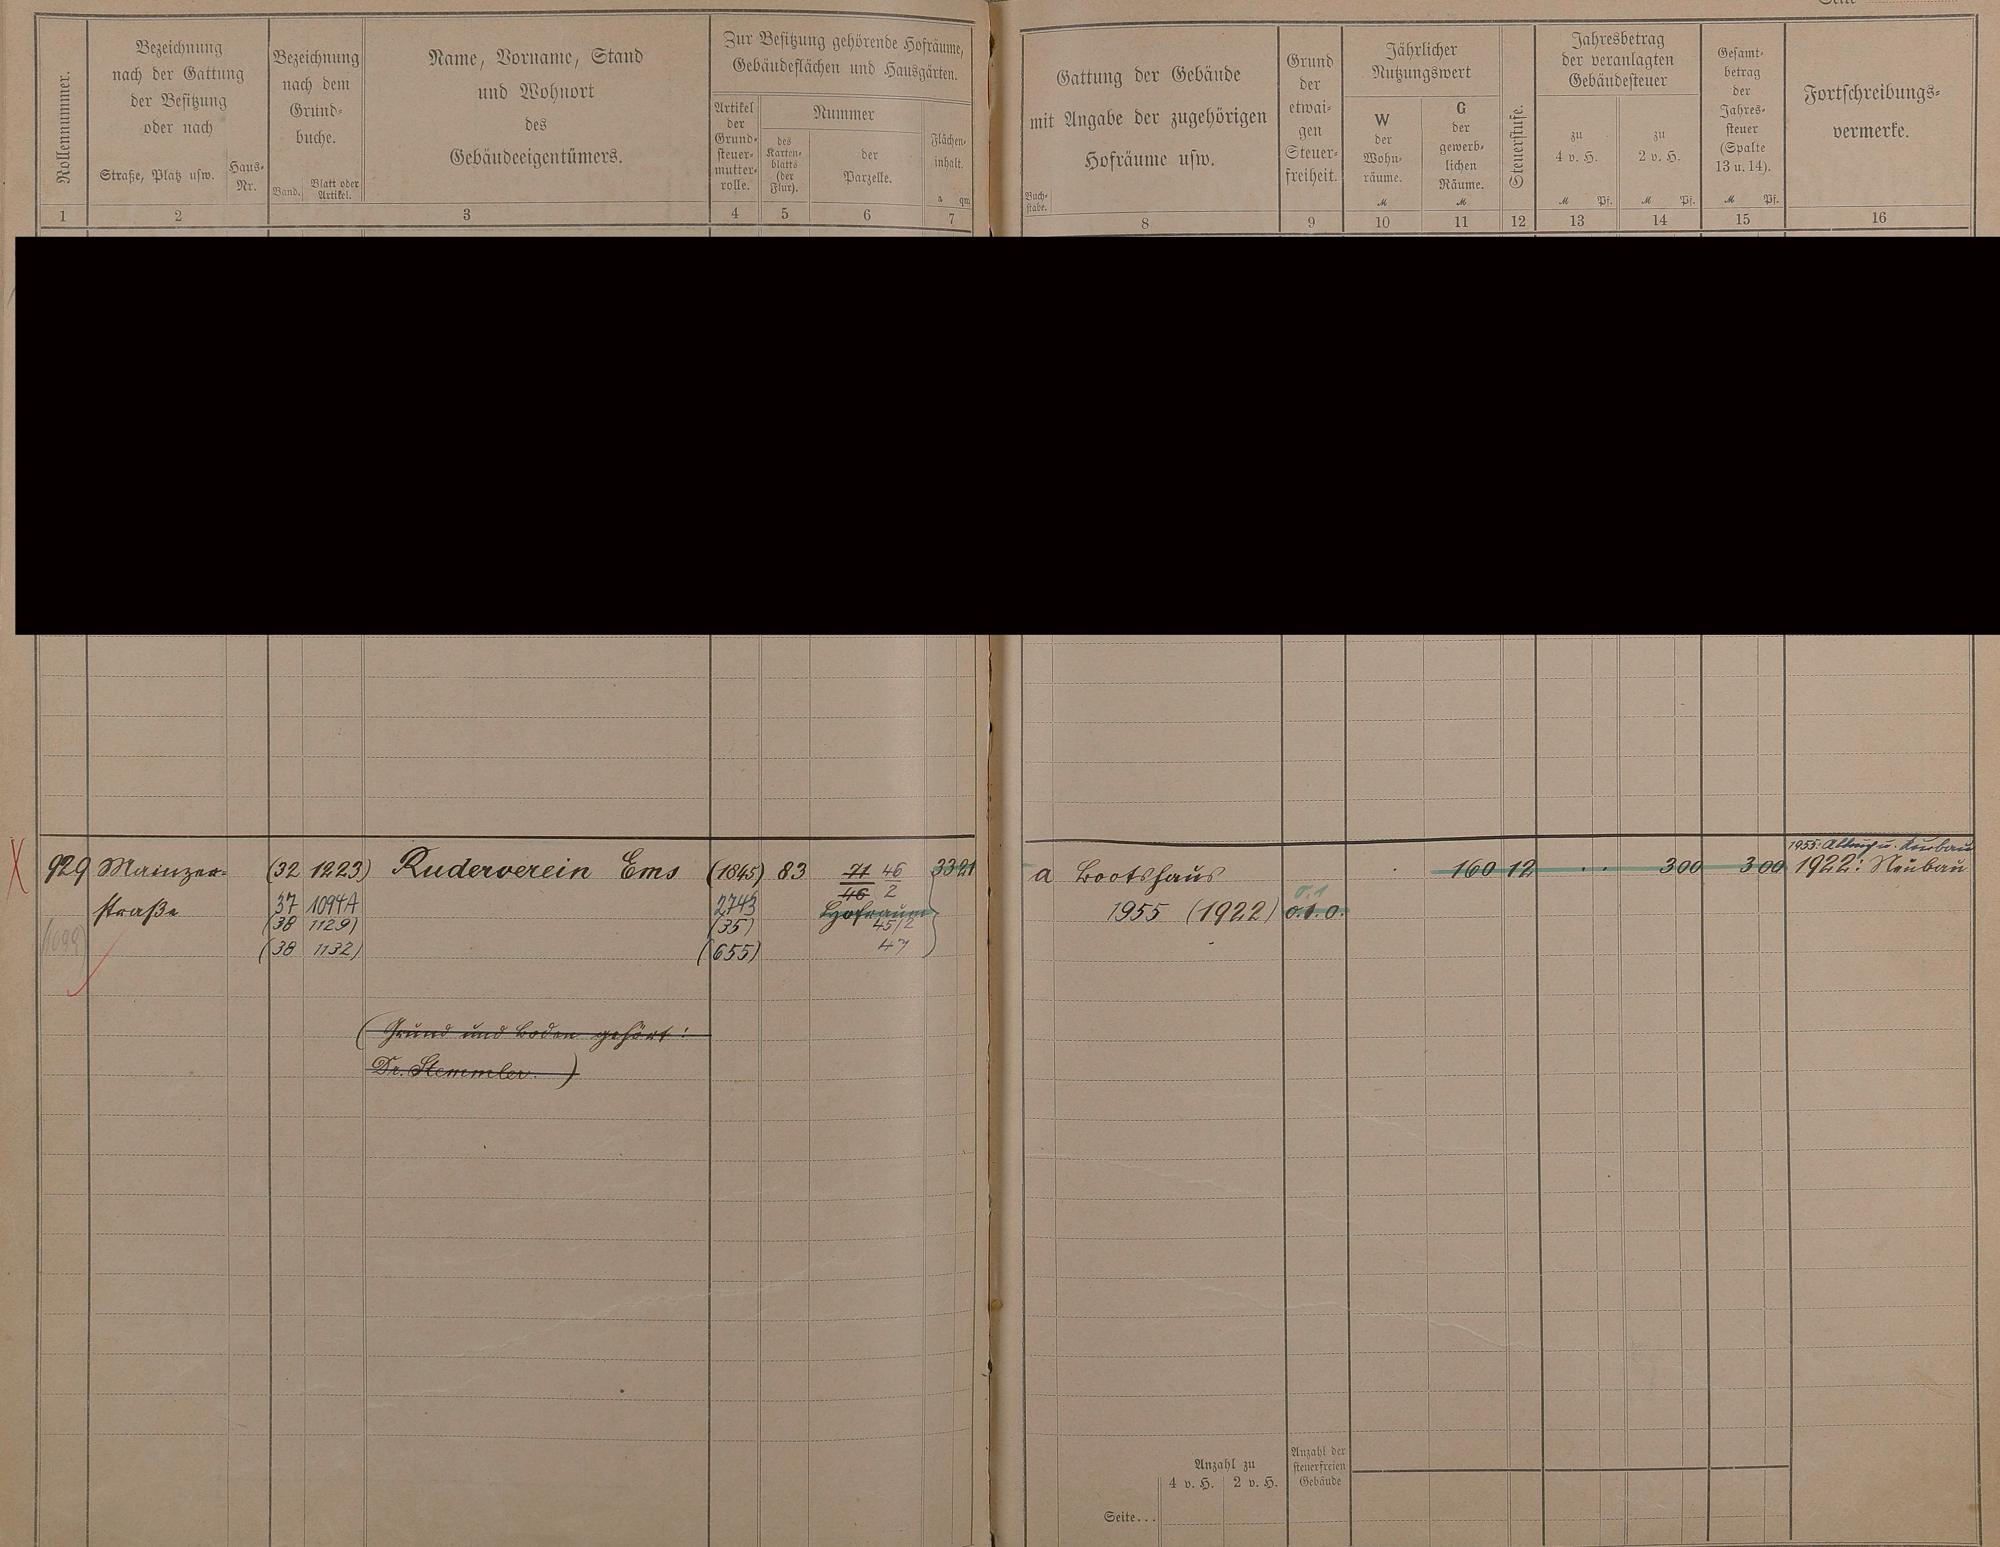 Seite
Rollennummer.
Bezeichnung
nach der Gattung
der Besitzung
oder nach
Straße, Platz usw.
Haus-
Nr.
Bezeichnung
nach dem
Grund-
buche.
Band.
Blatt oder
Artikel.
Name, Vorname, Stand
und Wohnort
des
Gebäudeeigentümers.
Zur Besitzung gehörende Hofräume,
Gebäudeflächen und Hausgärten.
Artikel
der
Grund-
steuer-
mutter-
rolle.
Nummer
des
Karten-
blatts
(der
Flur).
der
Parzelle.
Flächen-
inhalt.
a qm
1 2 3 4 5 6 7
Buch-
stabe.
Gattung der Gebäude
mit Angabe der zugehörigen
Hofräume usw.
Grund
der
etwai-
gen
Steuer-
freiheit.
Jährlicher
Nutzungswert
W
der
Wohn-
räume.
M
G
der
gewerb-
lichen
Räume.
M
Steuerstufe.
Jahresbetrag
der veranlagten
Gebäudesteuer
zu
4 v. H.
M Pf.
zu
2 v. H.
M Pf.
Gesamt-
betrag
der
Jahres-
steuer
(Spalte
13 u. 14).
M Pf.
Fortschreibungs-
vermerke.
8 9 10 11 12 13 14 15 16
X 929 Mainzer- (32 1223) Ruderverein Ems (1845) 83 71 46 3321
46 2
straße 37 1094A 2743 Hofraum
(38 1129) (35) 45/2
(1099) (38 1132) (655) 47
(Grund und Boden gehört:
Dr. Stemmler.)
1955: Abbruch u. Neubau
a Bootshaus 160 12 300 300 1922: Neubau
1955 (1922)
Anzahl zu
4 v. H. 2 v. H.
Anzahl der
steuerfreien
Gebäude
Seite...